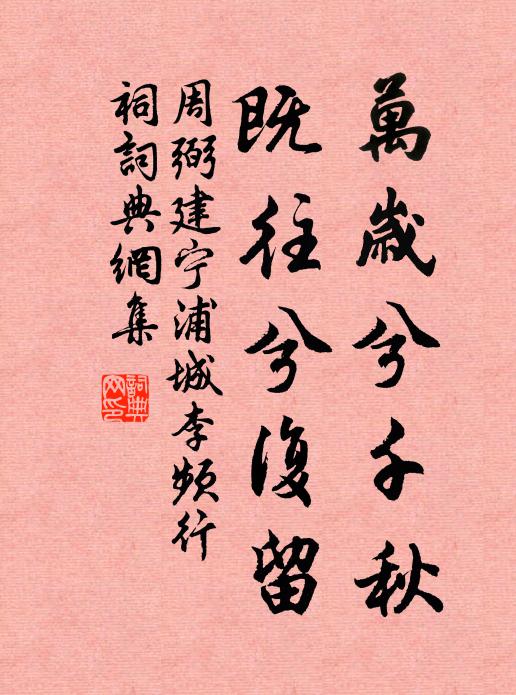 萬歲兮千秋
既往兮復留
周弼建宁浦城李频行
祠詞典網集
詞典网印